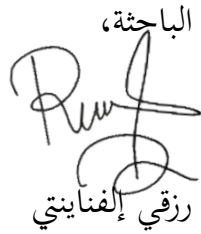 الباحثة،
رزقي إلفناينتي